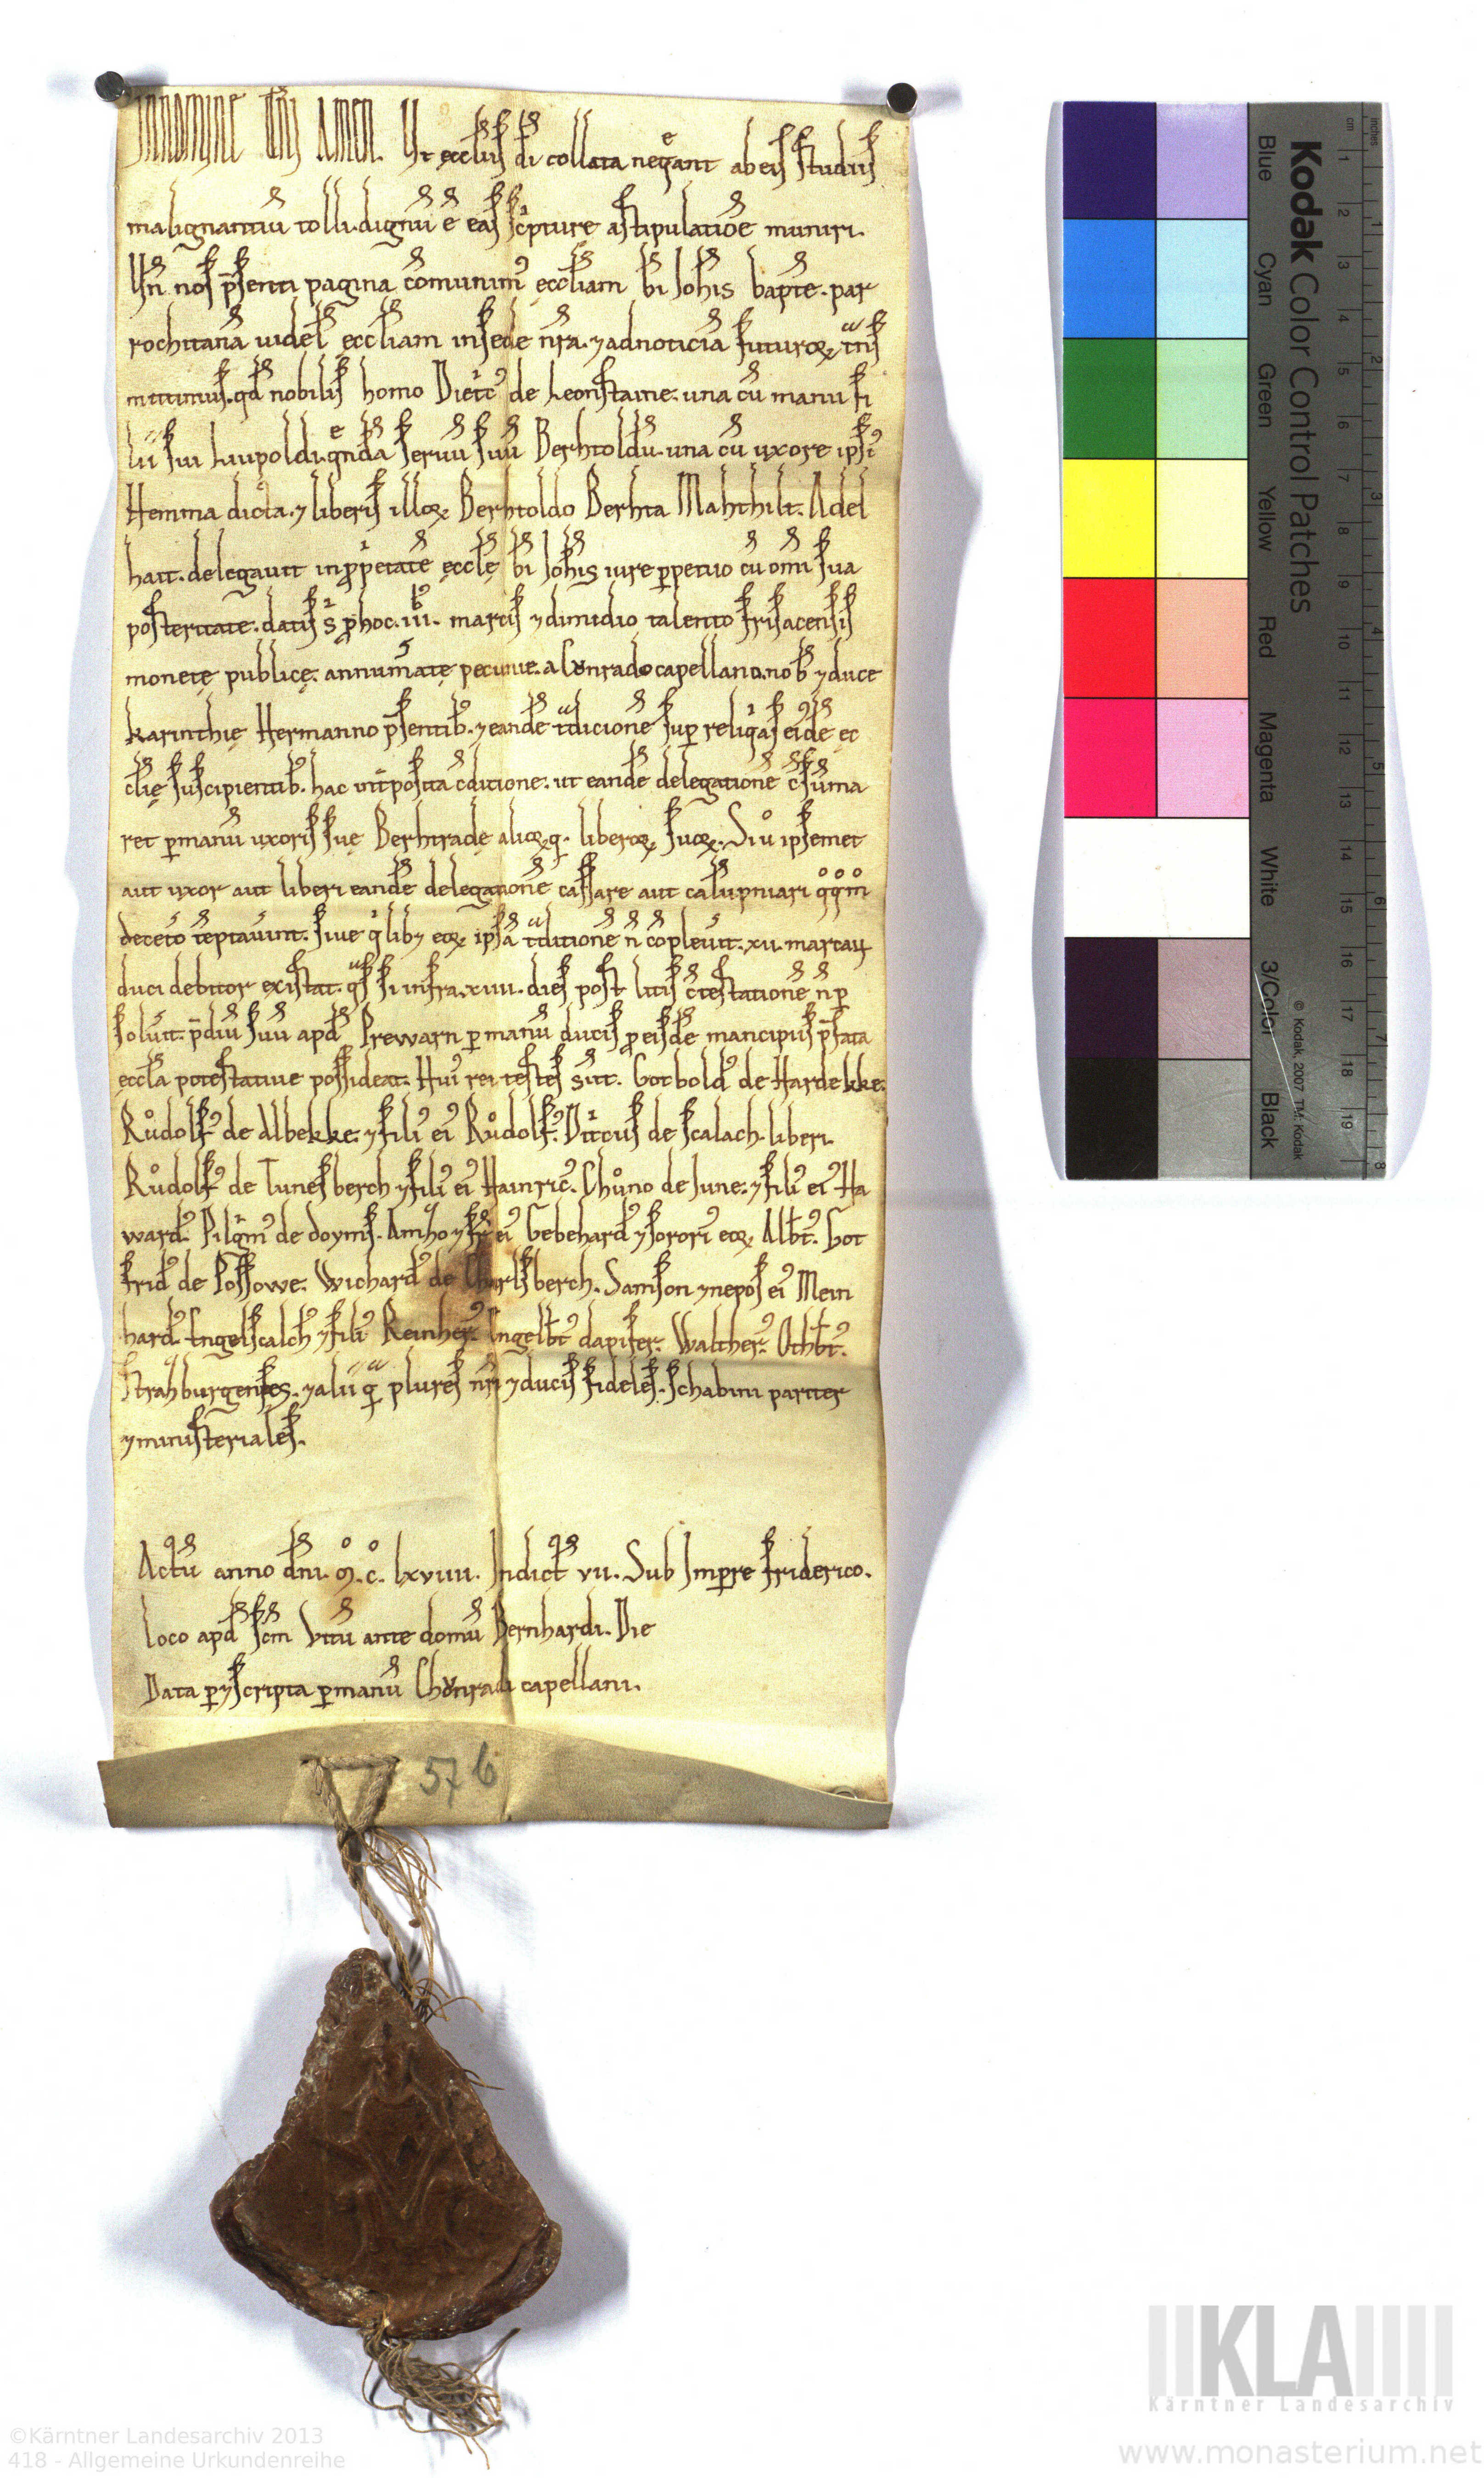 IN NOMINE DNI AMEN. Ut eccliis di collata neqeant ab eis studiis
malignantiu tolli. dignu e eas scipture astipulatioe muniri.
Un nos psenti pagina comunim eccliam bi Johis bapte. par
rochitana uidel ecclesiam in sede nra. ⁊ ad noticia futuroꝝ tns
mittimus. qd nobilis homo Dietic de Leonstaine. una cu manu fi
lii sui Liupoldi. qenda seruu suu Berhtoldu. una cu uxore ipsi
Hemma dicta. ⁊ liberis illoꝝ Berhtoldo Berhta Mahthilt. Adel
hait. delegauit in ꝓpietate eccle bi Johis iure ꝑpetuo cu omi sua
posteritate. datis s ꝓ hoc. iii. marcis ⁊ dimidio talento frisacensis
monetę publicę. annumate pecunie. a Cͮonrado capellano. nob ⁊ duce
karinthię Hermanno psentib. ⁊ eande tdicione suꝑ reliqas eide ec
clię suscipientib. hac intposita cditione. ut eande delegatione csuma
ret ꝑ manu uxoris suę Berhtradę alioꝝ q. liberoꝝ suoꝝ. Si u ipsemet
aut uxor aut liberi eande delegatione cassare aut calupniari qqm
deceto teptauint. siue qliby eoꝝ ipsa tditione n copleuit. xv. marcaꝝ
duci debitor existat. qs si infra. xiiii. dies post litis ctestatione n ꝑ
soluit. pdiu suu apd Prewarn ꝑ manu ducis ꝓ eisde mancipiis pfata
eccla potestatiue possideat. Hui rei testes sut. Gotbold de Hardekke.
Růdolf de Albekke. ⁊ fili ei Růdolf. Ditcus de scalach. liberi.
Růdolf de Tunesberch ⁊ fili ei Hainric. Chůno de Iune. ⁊ fili ei Ha
ward. Pilgim de doyms. Amlho ⁊ fr ei Gebehard ⁊ sorori eoꝝ Albt. Got
frid de Possowe. Wichard de Charlsberch. Samson ⁊ nepos ei Mein
hard. Engelscalch ⁊ fili Reinher. Engelbt dapifer. Walther. Othbt.
strazburgenses. ⁊ alii q plures nri ⁊ ducis fideles. schabini pariter
⁊ ministeriales.
Actu anno dni. M. C. lxviiii. Indict vii. Sub Impre friderico.
loco apd scm Vitu ante domu Bernhardi. Die
Data ꝑ ⁊ scripta ꝑ manu Chͮonradi capellani.
576
Kodak Color Control Patches
Blue Cyan Green Yellow Red Magenta White 3/Color Black
© Kodak, 2007 TM: Kodak
inches 1 2 3 4 5 6 7 8
cm 1 2 3 4 5 6 7 8 9 10 11 12 13 14 15 16 17 18 19
KLA
Kärntner Landesarchiv
©Kärntner Landesarchiv 2013
418 - Allgemeine Urkundenreihe
www.monasterium.net